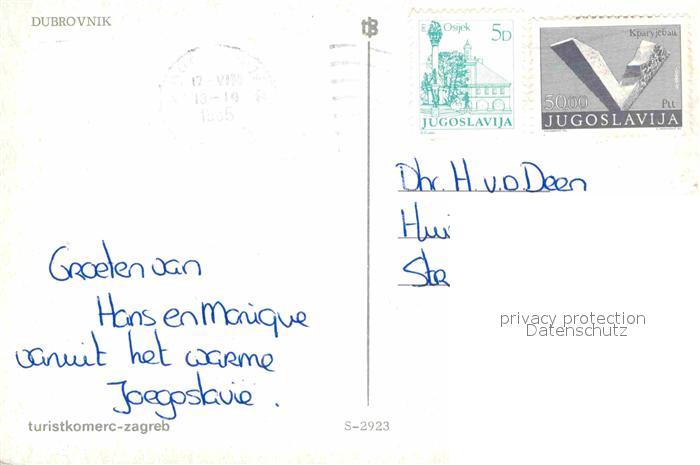 DUBROVNIK
12-VI
13-19
Osijek 5D
JUGOSLAVIJA
50.00 Ptt
JUGOSLAVIJA
Dhr. H. v.d. Deen
Groeten van
Hans en Monique
vanuit het warme
Joegoslavië.
privacy protection
Datenschutz
turistkomerc-zagreb
S-2923